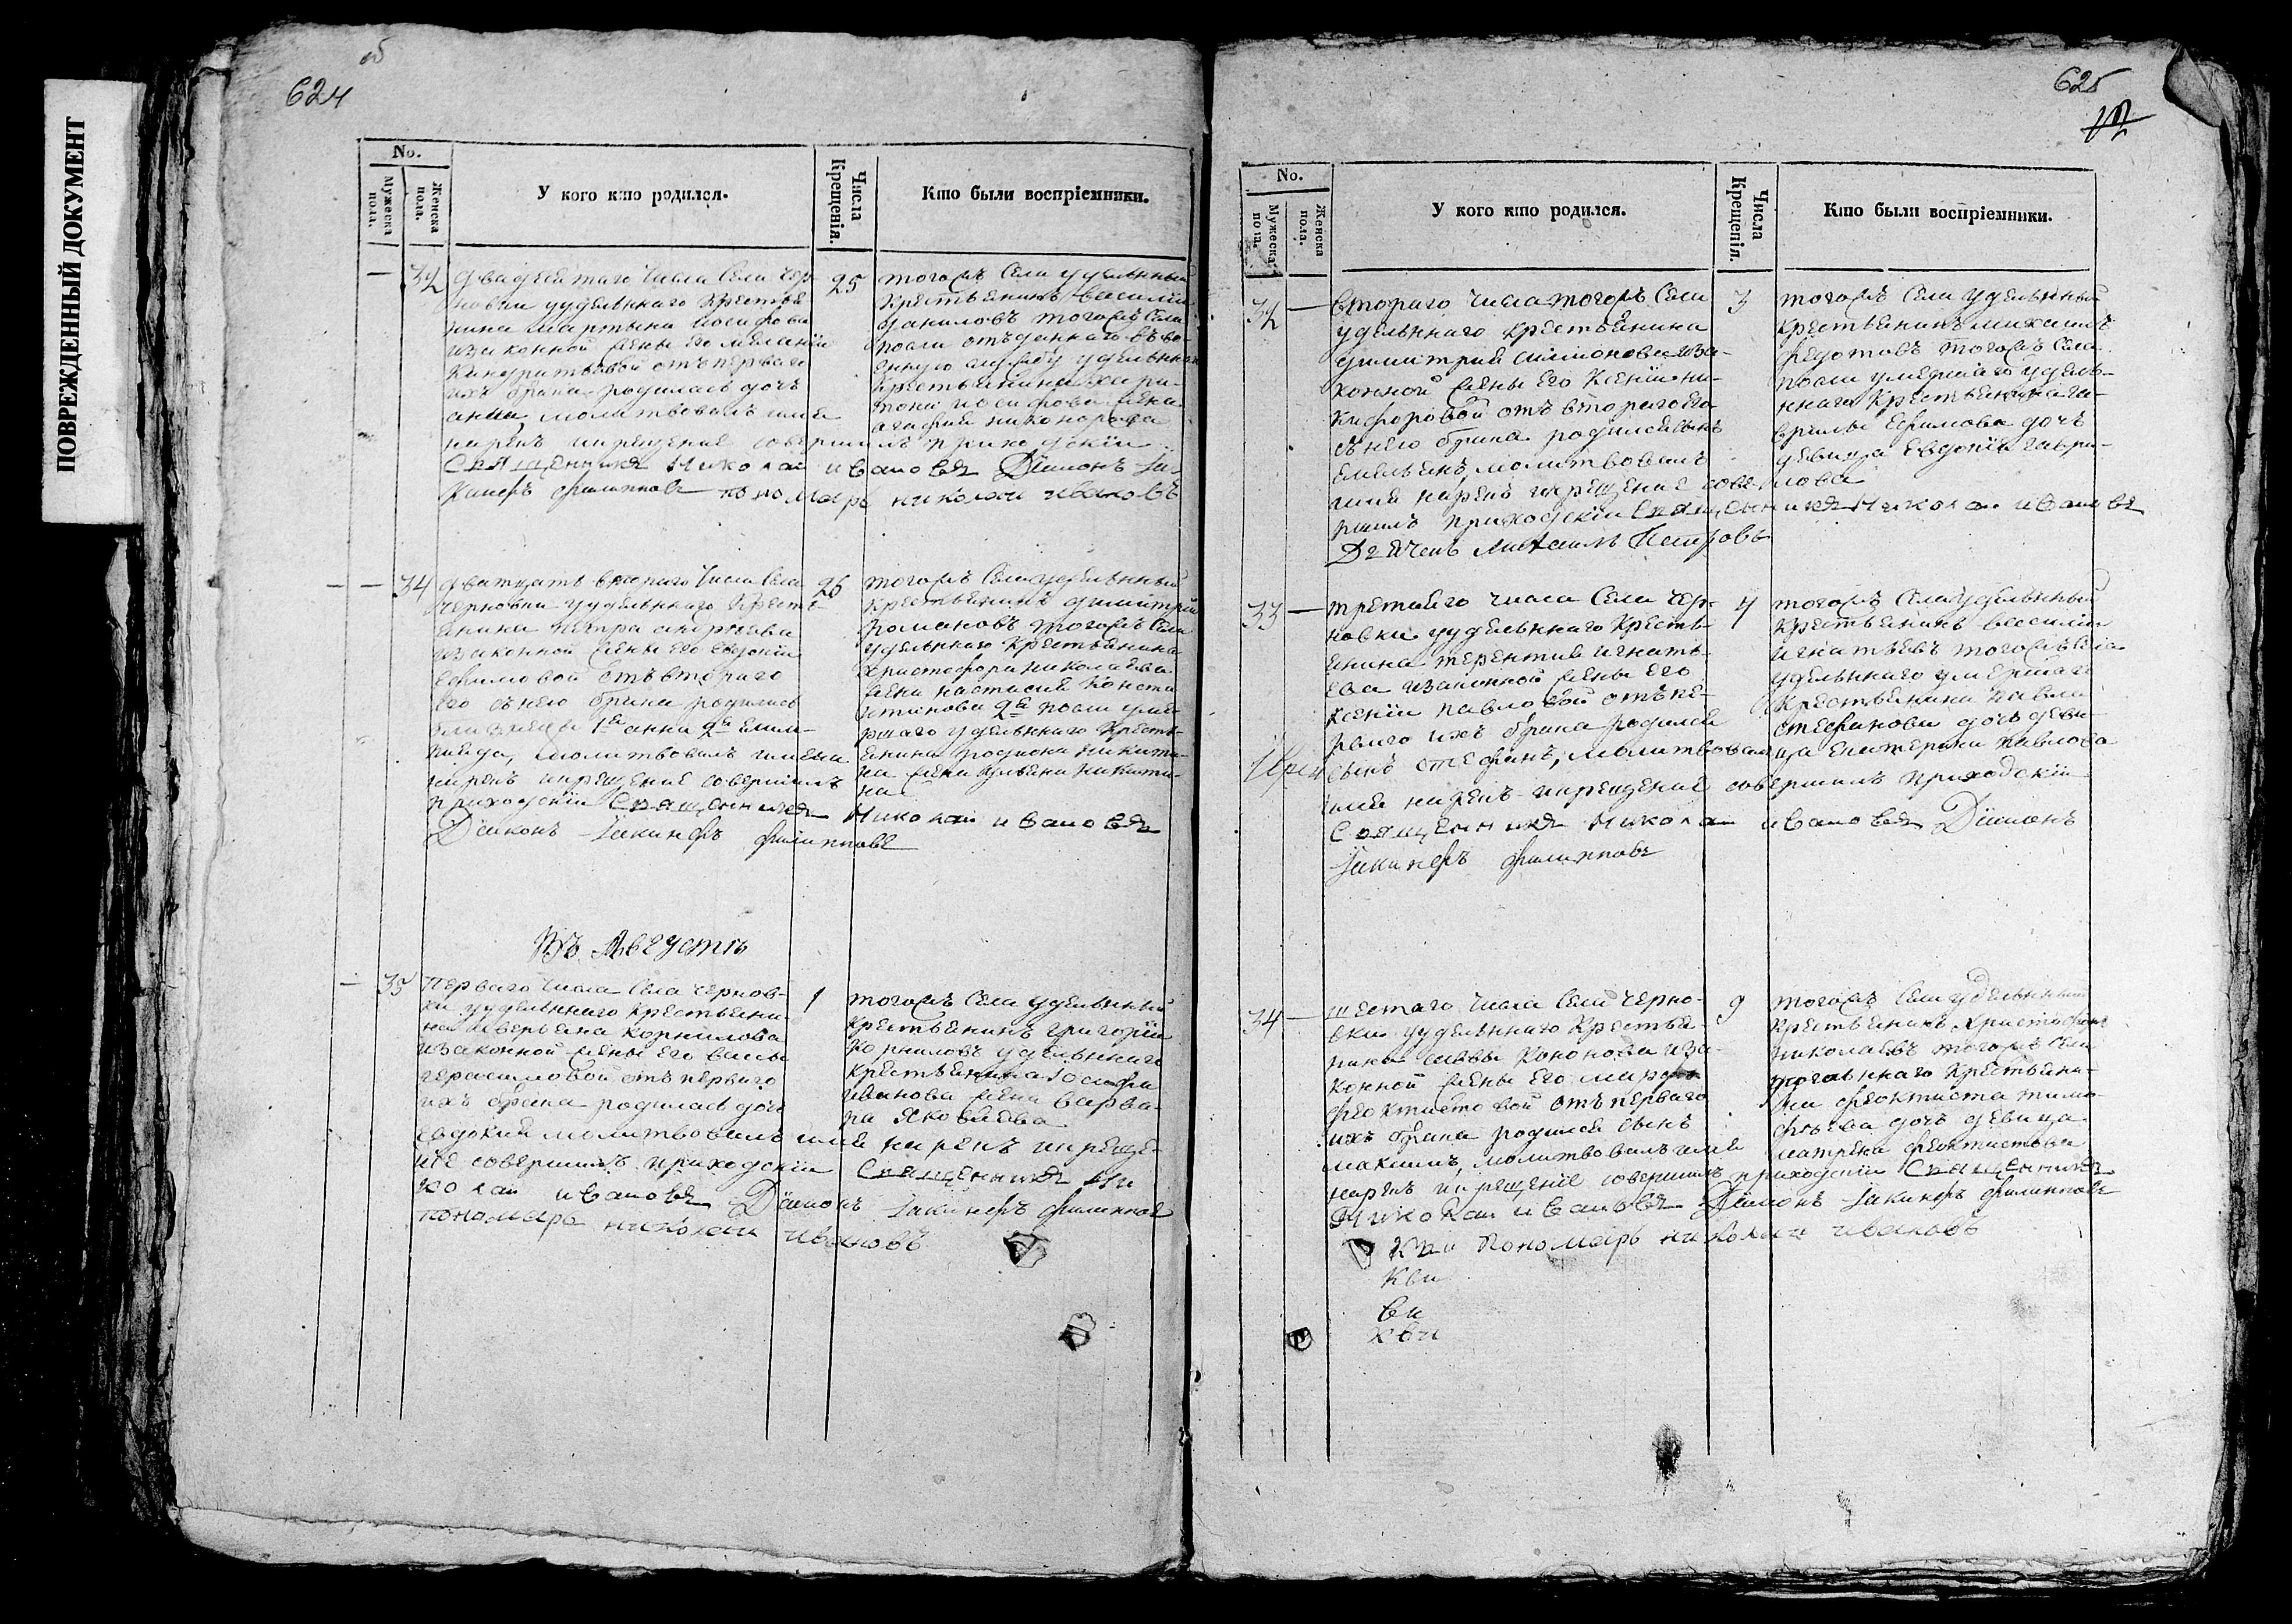 ПОВРЕЖДЕННЫЙ ДОКУМЕНТ
об
624
No.
Мужеска пола.
Женска пола.
У кого кто родился.
Числа Крещенія.
Кто были воспріемники.
— 32
25
новки удѣльнаго крестья
нина Мартына Іосифова
изаконной жены его Меланіи
отъ перваго
ихъ брака родилась дочь
анна, молитвовалъ имя
нарекъ икрещеніе совершилъ приходскій
Священникъ Николай Ивановъ Діаконъ Іа-
кинфъ Филипповъ пономарь николай ивановъ
тогожъ Села удѣльный
крестьянинъ василій
даниловъ тогожъ Села
послѣ отъданнаго въ во-
енную службу удѣльнаго
крестьянина хари-
тона іосифова жена
агафія никонорова
— — 34
Числа Села
черновки удѣльнаго крестъ-
янина петра андреева
изаконной жены его евдокіи
ефимовой отъ втораго
его снею брака родились
близнецы 1я анна 2я
молитвовалъ имена
нарекъ икрещеніе совершилъ
приходскій Священникъ Николай Ивановъ
Діаконъ Іакинфъ Филипповъ
тогожъ Села удѣльный
крестьянинъ димитрій
романовъ тогожъ Села
удѣльнаго крестьянина
христофора николаева
жена настасія конста
нтинова 2я послѣ уме
ршаго удѣльнаго кресть-
янина родіона никити-
на жена ульяна никити-
на
Въ Августѣ
— 35
перваго числа Села чернов-
ки удѣльнаго крестьяни-
на аверьяна корнилова
изаконной жены его
герасимовой отъ перваго
ихъ брака родилась дочь
евдокія молитвовалъ имя нарекъ икреще-
ніе совершилъ приходскій Священникъ Ни
колай Ивановъ Діаконъ Іакинфъ Филипповъ
пономарь николай ивановъ
1
тогожъ Села удѣльный
крестьянинъ григорій
корниловъ удѣльнаго
крестьянина Іосифа
иванова жена варва-
ра яковлева
625
No.
Мужеска пола.
Женска пола.
У кого кто родился.
Числа Крещенія.
Кто были воспріемники.
32 —
втораго числа тогожъ Села
удѣльнаго крестьянина
димитрія симіонова иза-
конной жены его Ксеніи ни-
кифоровой отъ втораго его
снею брака родился сынъ
емельянъ, молитвовалъ
имя нарекъ икрещеніе сове-
ршилъ приходскій Священникъ Николай Ивановъ
Дьячекъ Михаилъ Петровъ
3
тогожъ Села удѣльный
крестьянинъ михаилъ
федотовъ тогожъ Села
послѣ умершаго удѣль-
наго крестьянина га-
врилы ефимова дочь
девица евдокія гаври-
лова
33 —
третьяго числа Села чер-
новки удѣльнаго кресть-
янина терентія игнать-
ева изаконной жены его
ксеніи павловой отъ пе-
рваго ихъ брака родился
сынъ стефанъ, молитвовалъ
имя нарекъ икрещеніе совершилъ приходскій
Священникъ Николай Ивановъ Діаконъ
Іакинфъ Филипповъ
4
тогожъ Села удѣльный
крестьянинъ василій
игнатьевъ тогожъ Села
удѣльнаго умершаго
крестьянина павла
стефанова дочь деви-
ца екатерина павлова
34 —
шестаго числа Села черно-
вки удѣльнаго крестья-
нина саввы кононова иза-
конной жены его
феоктистовой отъ перваго
ихъ брака родился сынъ
максимъ, молитвовалъ имя
нарекъ икрещеніе совершилъ приходскій Священникъ
Николай Ивановъ Діаконъ Іакинфъ Филипповъ
Пономарь николай ивановъ
9
тогожъ Села удѣльный
крестьянинъ христофоръ
николаевъ тогожъ Села
крестьяни-
на феоктиста тимо-
фѣева дочь девица
матрена феоктистова